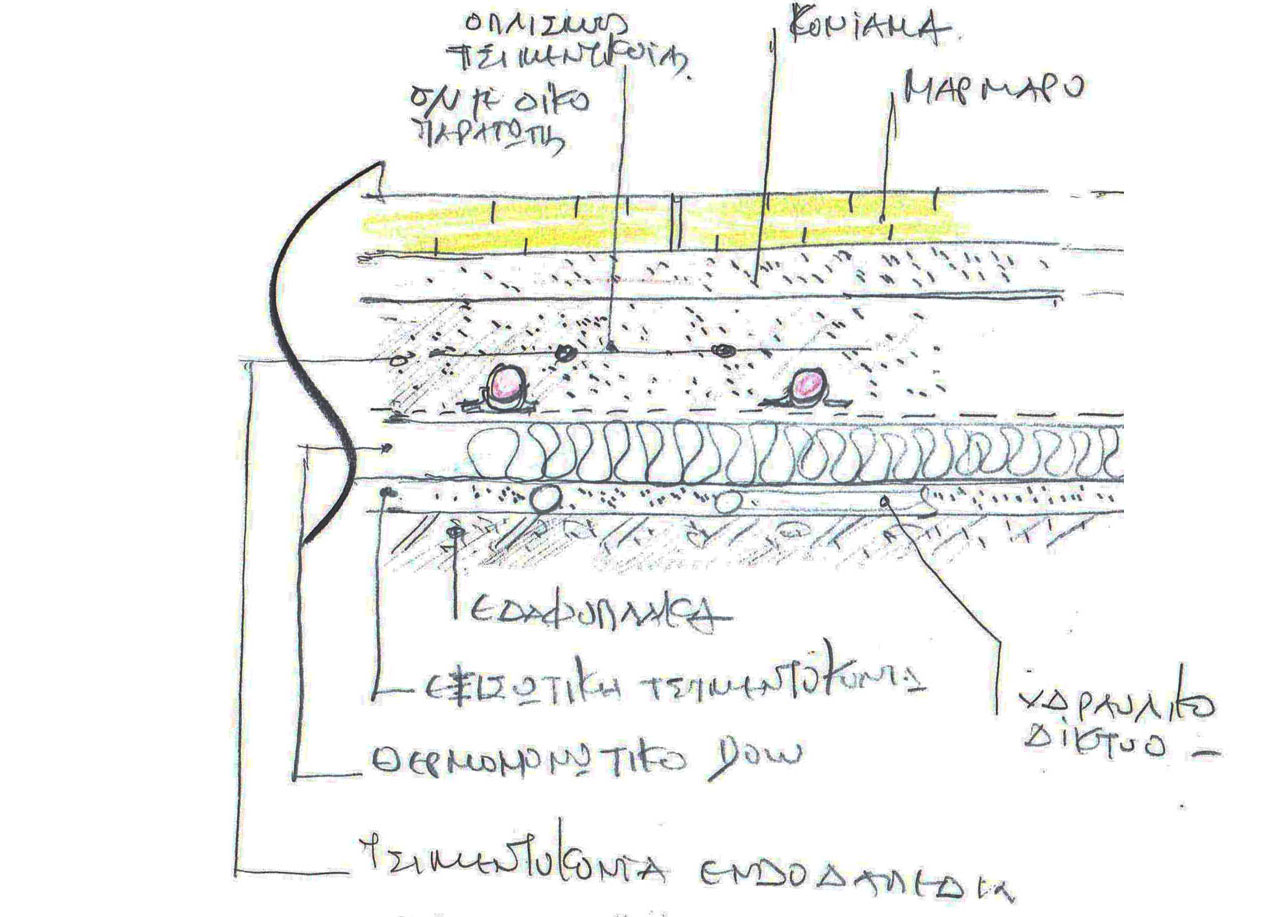 ΟΠΛΙΣΜΟΣ
ΤΣΙΜΕΝΤΟΚΟΝΙΑΣ
ΚΟΝΙΑΜΑ.
ΜΑΡΜΑΡΟ
ΕΔΑΦΟΠΛΑΚΑ
ΕΞΙΣΩΤΙΚΗ ΤΣΙΜΕΝΤΟΚΟΝΙΑ
ΥΔΡΑΥΛΙΚΟ
ΔΙΚΤΥΟ –
ΘΕΡΜΟΜΟΝΩΤΙΚΟ DOW
ΤΣΙΜΕΝΤΟΚΟΝΙΑ ΕΝΔΟΔΑΠΕΔΙΑ